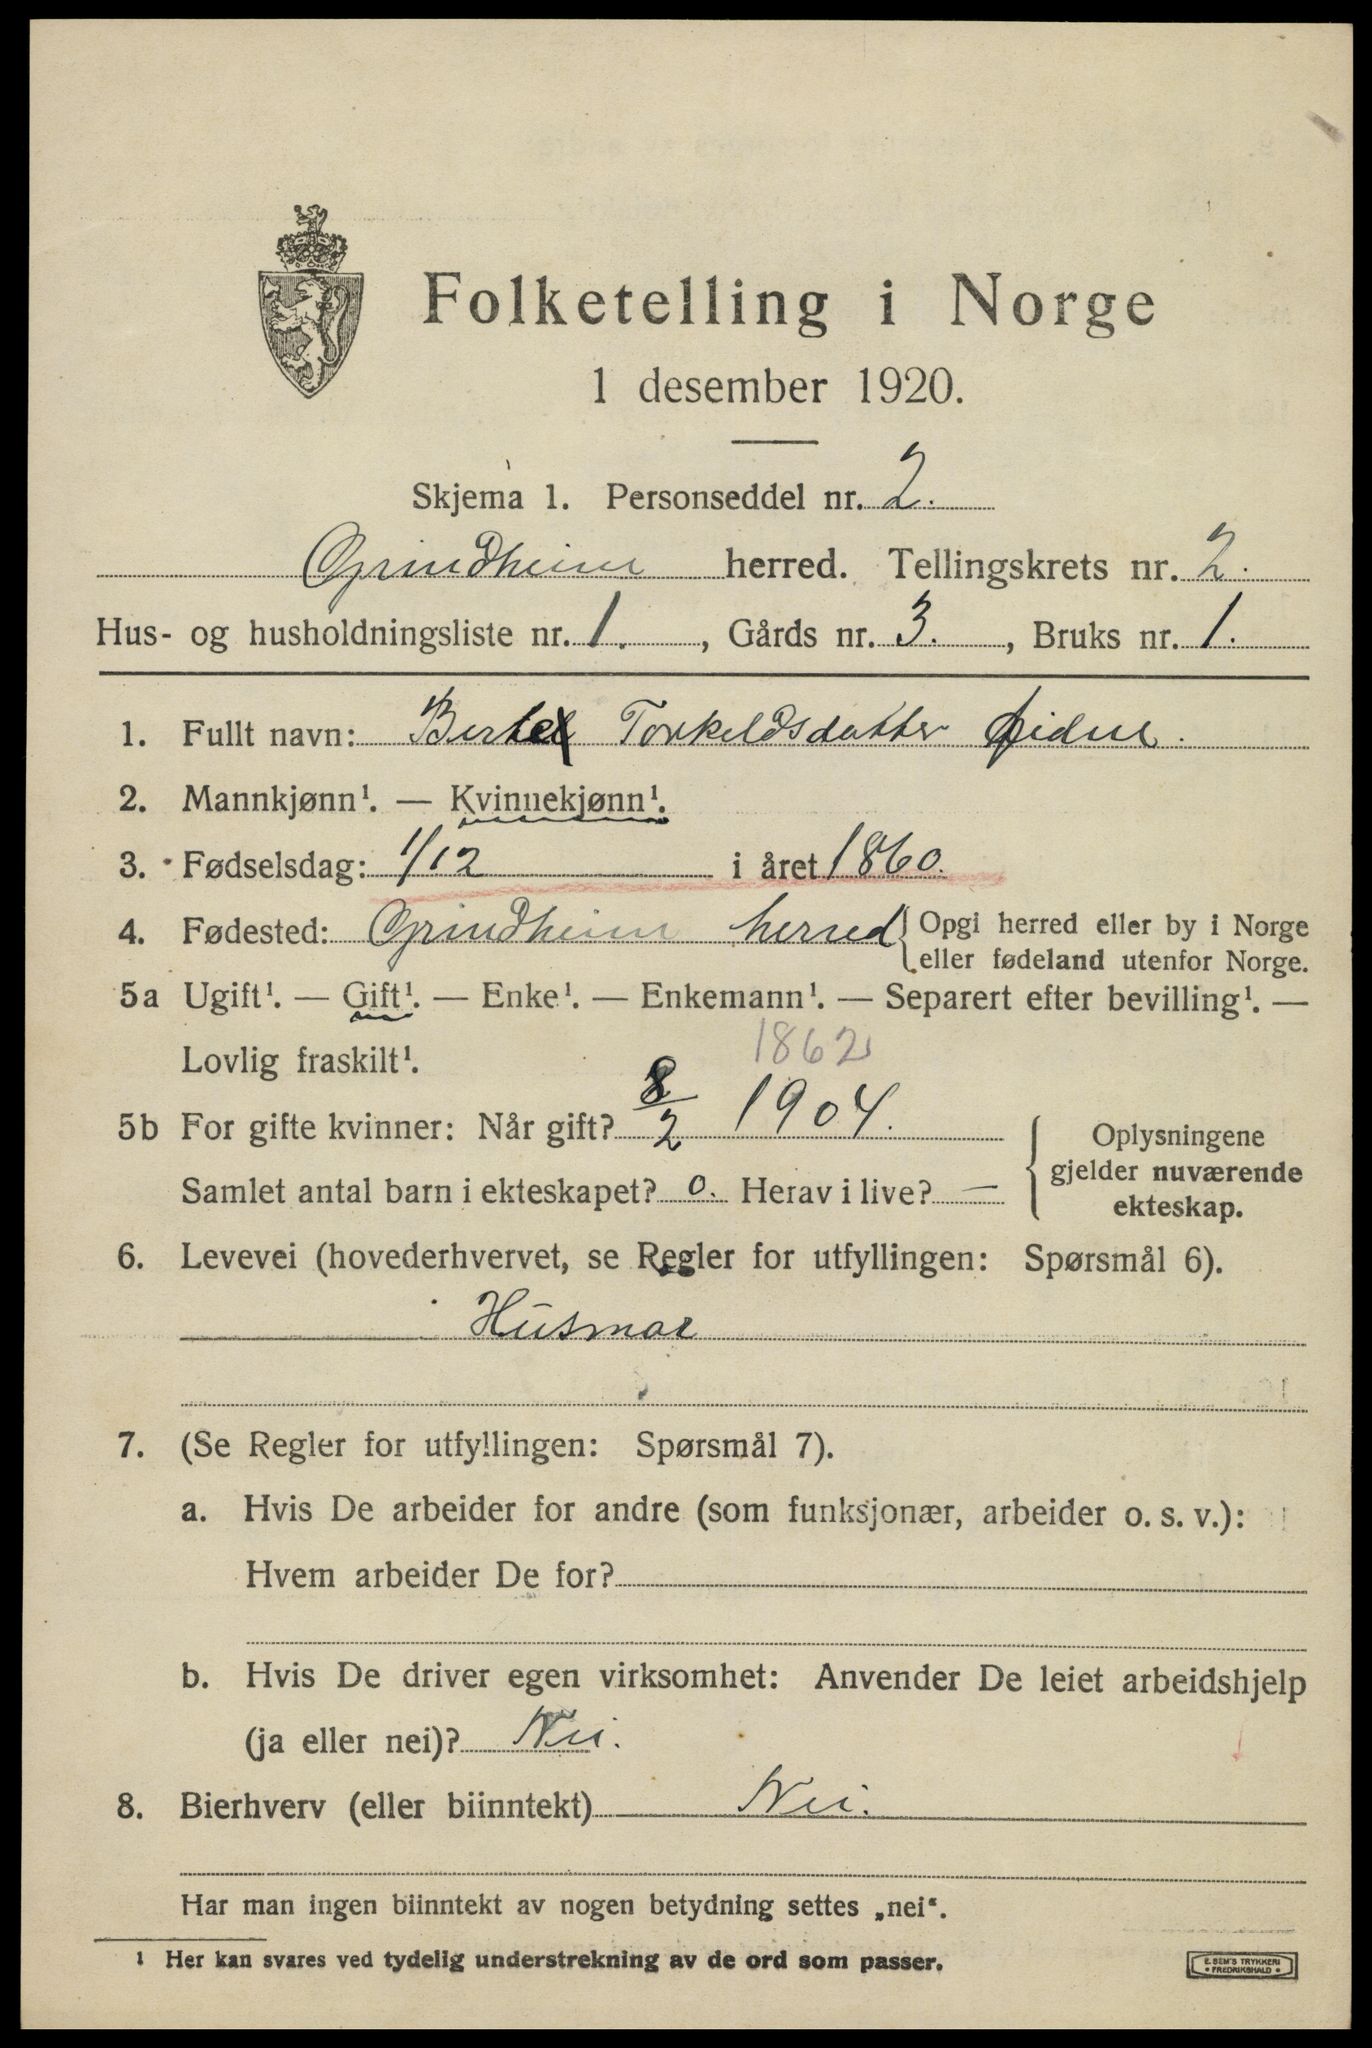 Folketelling i Norge
1 desember 1920.
Skjema 1. Personseddel nr. 2.
Grindheim herred. Tellingskrets nr. 2.
Hus- og husholdningsliste nr. 1. , Gårds nr. 3. , Bruks nr. 1.
1. Fullt navn: Torkeldsdatter
2. Mannkjønn¹. — Kvinnekjønn¹.
3. Fødselsdag: 1/12 i året 1860.
4. Fødested: Grindheim herred { Opgi herred eller by i Norge
eller fødeland utenfor Norge.
5a Ugift¹. — Gift¹. — Enke¹. — Enkemann¹. — Separert efter bevilling¹. —
Lovlig fraskilt¹. 1862
5b For gifte kvinner: Når gift? 8/2 1904.
Samlet antal barn i ekteskapet? 0. Herav i live? —
Oplysningene
gjelder nuværende
ekteskap.
6. Levevei (hovederhvervet, se Regler for utfyllingen: Spørsmål 6).
Husmor
7. (Se Regler for utfyllingen: Spørsmål 7).
a. Hvis De arbeider for andre (som funksjonær, arbeider o. s. v.):
Hvem arbeider De for?
b. Hvis De driver egen virksomhet: Anvender De leiet arbeidshjelp
(ja eller nei)? Nei.
8. Bierhverv (eller biinntekt) Nei.
Har man ingen biinntekt av nogen betydning settes „nei“.
¹ Her kan svares ved tydelig understrekning av de ord som passer.
E. SEM'S TRYKKERI
• FREDRIKSHALD •